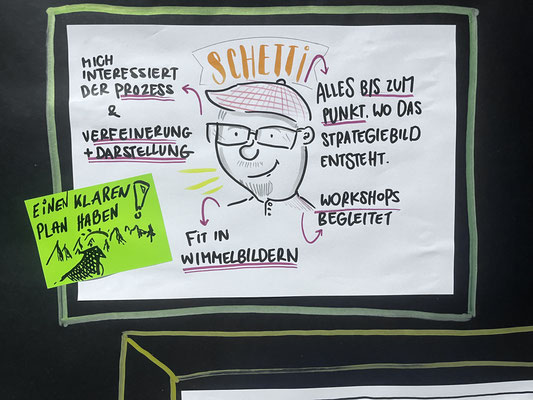 SCHETTI
MICH
INTERESSIERT
DER PROZESS
&
VEREEINERUNG
+ DARSTELLUNG
ALLES BIS ZUM
PUNKT, WO DAS
STRATEGIEBILD
ENTSTEHT.
WORKSHOPS
BEGLEITET
FIT IN
WIMMELBILDERN
EINEN KLAREN
PLAN HABEN!